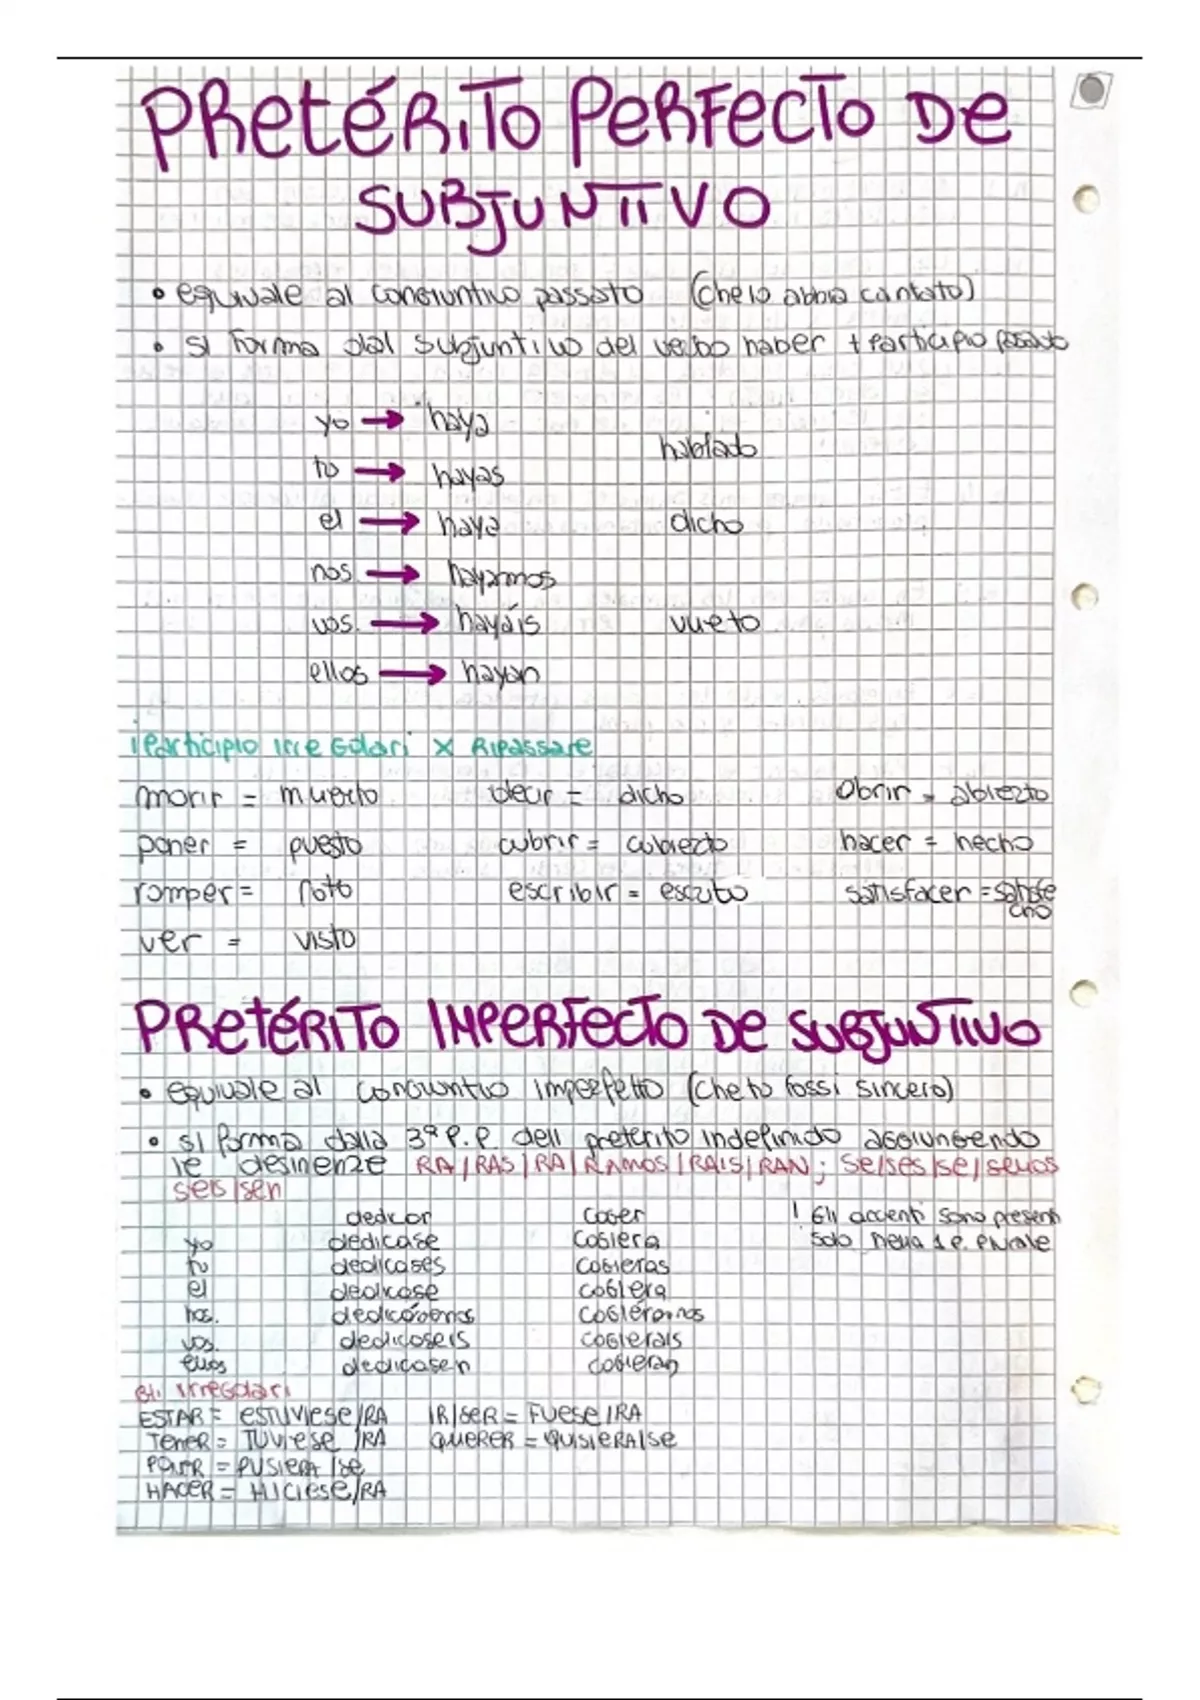 PRetéRiTo PeRFecTo De
SUBJUNTIVO
• equivale al congiuntivo passato (che io abbia cantato)
• si forma dal subjuntivo del verbo haber + participio passato
yo → haya
hablado
tu → hayas
el → haya dicho
nos → hayamos
vos. → hayáis vueto
ellos → hayan
i Participio irregolari x Ripassare
morir = muerto decir = dicho Obrir = abierto
poner = puesto cubrir = cubierto hacer = hecho
romper = roto escribir = escrito satisfacer = satisfe
cho
ver = visto
PRetéRITO IMPeRfecto De SUBJUNTIVO
• equivale al congiuntivo imperfetto (che tu fossi sincero)
• si forma dalla 3ª P.P. dell preterito indefinido aggiungendo
le desinenze RA/RAS/RA/RAMOS/RAIS/RAN; se/ses/se/semos
seis/sen
dedicar coger ! Gli accenti sono presenti
yo dedicase cogiera solo nella 1 p. plurale
tu dedicases cogieras
el dedicase cogiera
nos. dedicásemos cogiéramos
vos. dedicaseis cogierais
ellos dedicasen cogieran
Gli irregolari
ESTAR = ESTUVIESE/RA IR/SER = FUESE/RA
TENER = TUVIESE/RA QUERER = QUISIERA/SE
= PUSIERA/SE
HACER = HICIESE/RA